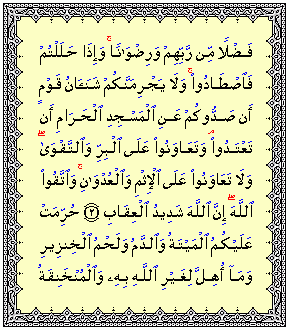 فَضْلًا مِّن رَّبِّهِمْ وَرِضْوَٰنًا ۚ وَإِذَا حَلَلْتُمْ
فَٱصْطَادُوا۟ ۚ وَلَا يَجْرِمَنَّكُمْ شَنَـَٔانُ قَوْمٍ
أَن صَدُّوكُمْ عَنِ ٱلْمَسْجِدِ ٱلْحَرَامِ أَن
تَعْتَدُوا۟ ۘ وَتَعَاوَنُوا۟ عَلَى ٱلْبِرِّ وَٱلتَّقْوَىٰ ۖ
وَلَا تَعَاوَنُوا۟ عَلَى ٱلْإِثْمِ وَٱلْعُدْوَٰنِ ۚ وَٱتَّقُوا۟
ٱللَّهَ ۖ إِنَّ ٱللَّهَ شَدِيدُ ٱلْعِقَابِ ﴿٢﴾ حُرِّمَتْ
عَلَيْكُمُ ٱلْمَيْتَةُ وَٱلدَّمُ وَلَحْمُ ٱلْخِنزِيرِ
وَمَآ أُهِلَّ لِغَيْرِ ٱللَّهِ بِهِۦ وَٱلْمُنْخَنِقَةُ